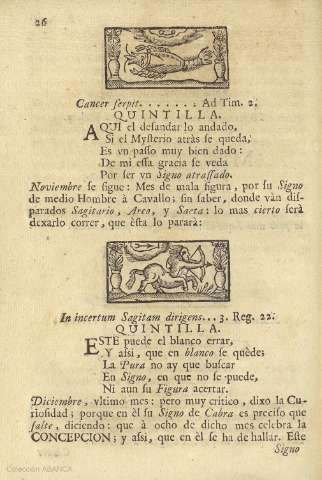 26
Cancer serpit. . . . . . : Ad Tim. 2.
QUINTILLA.
AQUI el desandar lo andado,
Si el Mysterio atràs se queda,
Es vn passo muy bien dado:
De mi essa gracia se veda
Por ser vn Signo atrassado.
Noviembre se sigue: Mes de mala figura, por su Signo
de medio Hombre à Cavallo; sin saber, donde vàn dis-
parados Sagitario, Arco, y Saeta: lo mas cierto serà
dexarlo correr, que èsta lo pararà:
In incertum Sagitam dirigens... 3. Reg. 22.
QUINTILLA.
ESTE puede el blanco errar,
Y assi, que en blanco se quède;
La Pura no ay que buscar
En Signo, en que no se puede,
Ni aun su Figura acertar.
Diciembre, vltimo mes: pero muy critico, dixo la Cu-
riosidad; porque en èl su Signo de Cabra es preciso que
salte, diciendo: que à ocho de dicho mes celebra la
CONCEPCION; y assi, que en èl se ha de hallar. Este
Signo
Colección ABANCA